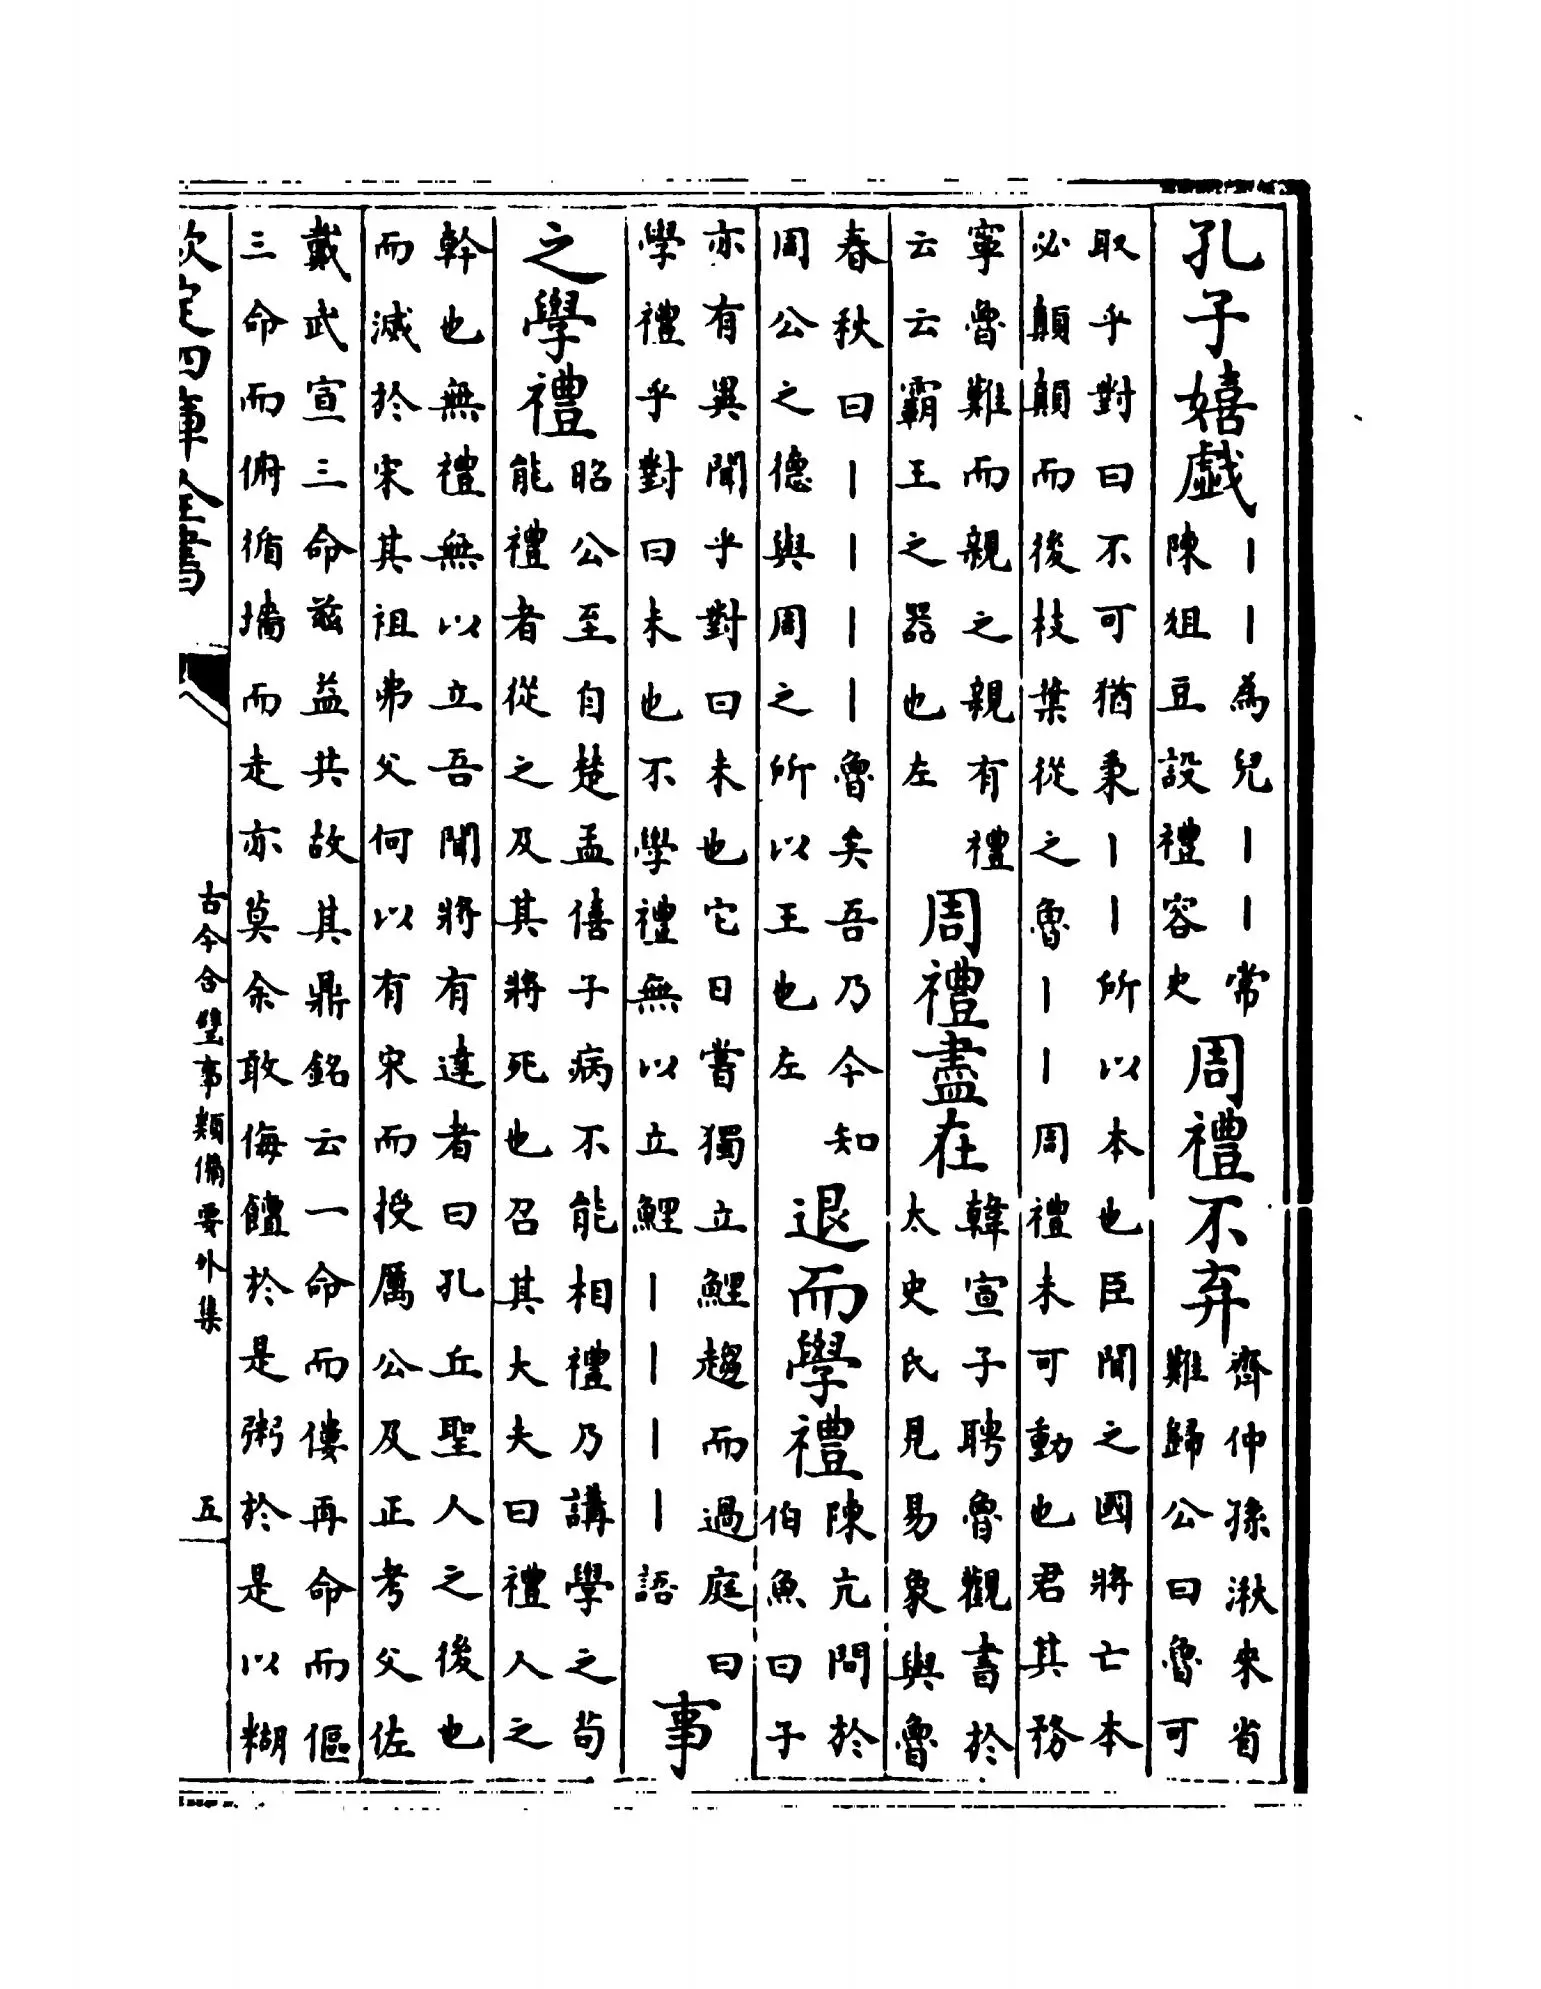 孔子嬉戲
｜｜為兒｜｜常
陳俎豆設禮容史
周禮不弃
齊仲孫湫來省
難歸公曰魯可
取乎對曰不可猶秉｜｜所以本也臣聞之國將亡本
必顛顛而後枝葉從之魯｜｜周禮未可動也君其務
寧魯難而親之親有禮
云云霸王之器也左
周禮盡在
韓宣子聘魯觀書於
太史氏見易象與魯
春秋曰｜｜｜｜魯矣吾乃今知
周公之德與周之所以王也左
退而學禮
陳亢問於
伯魚曰子
亦有異聞乎對曰未也它日嘗獨立鯉趨而過庭曰
學禮乎對曰未也不學禮無以立鯉｜｜｜｜語
事
之學禮
昭公至自楚孟僖子病不能相禮乃講學之苟
能禮者從之及其將死也召其大夫曰禮人之
幹也無禮無以立吾聞將有達者曰孔丘聖人之後也
而滅於宋其祖弗父何以有宋而授厲公及正考父佐
戴武宣三命茲益共故其鼎銘云一命而僂再命而傴
三命而俯循墻而走亦莫余敢侮饘於是粥於是以糊
欽定四庫全書
古今合璧事類備要外集
五